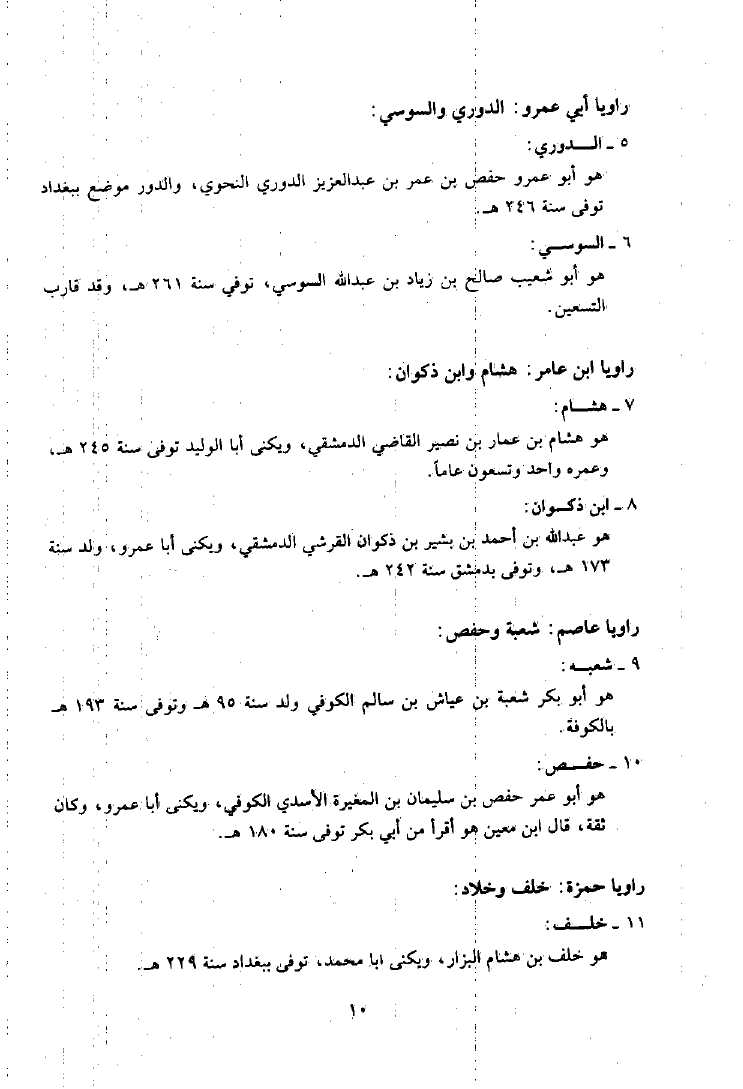 راويا أبي عمرو: الدوري والسوسي:
٥ ـ الـــدوري:
هو أبو عمرو حفص بن عمر بن عبدالعزيز الدوري النحوي، والدور موضع ببغداد
توفى سنة ٢٤٦ هـ.
٦ ـ السوســي:
هو أبو شعيب صالح بن زياد بن عبدالله السوسي، توفي سنة ٢٦١ هـ، وقد قارب
التسعين.
راويا ابن عامر: هشام وابن ذكوان:
٧ ـ هشــام:
هو هشام بن عمار بن نصير القاضي الدمشقي، ويكنى أبا الوليد توفى سنة ٢٤٥ هـ،
وعمره واحد وتسعون عاماً.
٨ ـ ابن ذكــوان:
هو عبدالله بن أحمد بن بشير بن ذكوان القرشي الدمشقي، ويكنى أبا عمرو، ولد سنة
١٧٣ هـ، وتوفى بدمشق سنة ٢٤٢ هـ.
راويا عاصم: شعبة وحفص:
٩ ـ شعبــه:
هو أبو بكر شعبة بن عياش بن سالم الكوفي ولد سنة ٩٥ هـ وتوفى سنة ١٩٣ هـ
بالكوفة.
١٠ ـ حفــص:
هو أبو عمر حفص بن سليمان بن المغيرة الأسدي الكوفي، ويكنى أبا عمرو، وكان
ثقة، قال ابن معين هو أقرأ من أبي بكر توفى سنة ١٨٠ هـ.
راويا حمزة: خلف وخلاد:
١١ ـ خلــف:
هو خلف بن هشام البزار، ويكنى ابا محمد، توفى ببغداد سنة ٢٢٩ هـ.
١٠